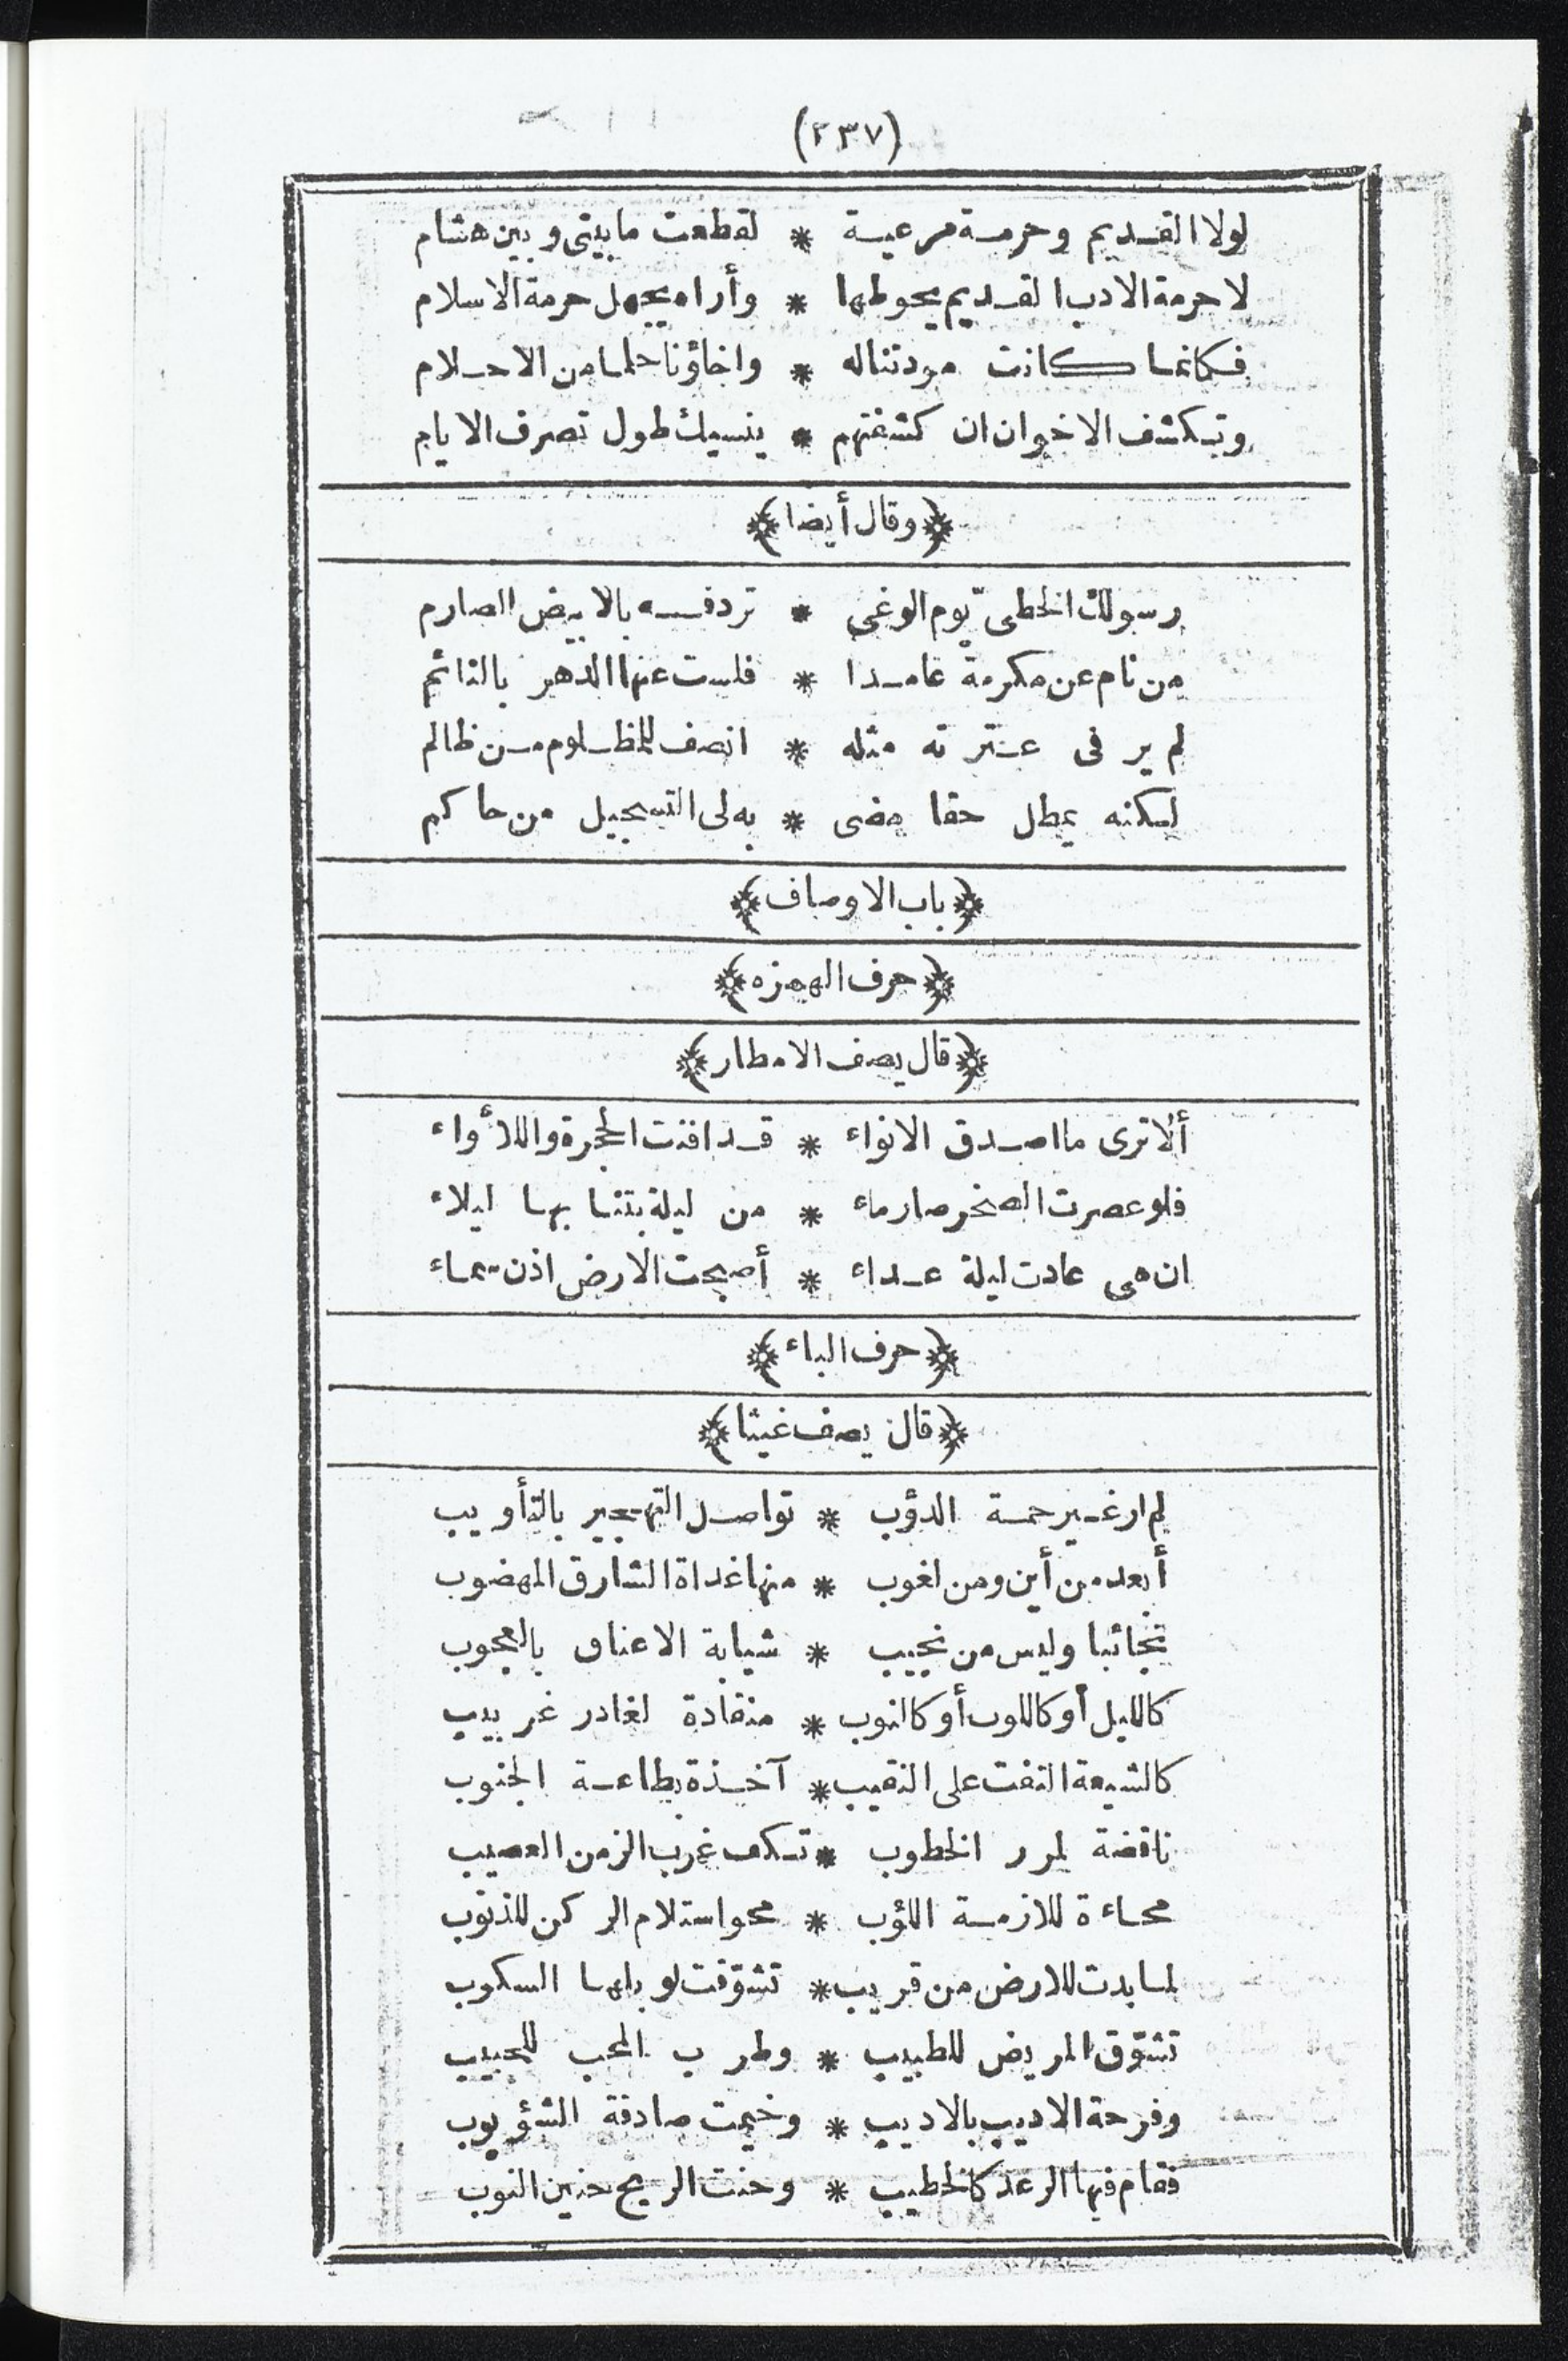 (٢٣٧)
لولا القديم وحرمة مرعية * لقطعت مابيني وبين هشام
لاحرمة الادب القديم يحوطها * وأراه يجهل حرمة الاسلام
فكانما كانت مودتناله * واخاؤنا حلمامن الاحلام
وتكشف الاخوان ان كشفتهم * ينسيك طول تصرف الايام
﴿وقال أيضا﴾
رسولك الخطى يوم الوغى * تردفه بالابيض الصارم
من نام عن مكرمة عامدا * فلست عنها الدهر بالنائم
لم ير فى عترته مثله * انصف للمظلوم من ظالم
لكنه يمطل حقا مضى * به لى التسجيل من حاكم
﴿باب الاوصاف﴾
﴿حرف الهمزه﴾
﴿قال يصف الامطار﴾
ألا ترى ما اصدق الانواء * قد افنت الحجرة واللأواء
فلو عصرت الصخر صار ماء * من ليلة بتنا بها ليلاء
ان هى عادت ليلة عداء * أصبحت الارض اذن سماء
﴿حرف الباء﴾
﴿قال يصف غيثا﴾
لم ار غير حمة الدؤب * تواصل التهجير بالتأويب
أبعد من أين ومن لغوب * منها غداة الشارق المهضوب
نجائبا وليس من نجيب * شيابة الاعناق بالعجوب
كالليل أو كاللوب أو كالنوب * منقادة لغادر غربيب
كالشيعة التفت على النقيب * آخذة بطاعة الجنوب
ناقضة لمرر الخطوب * تكف غرب الزمن العصيب
محاءة للازمة اللؤب * محو استلام الركن للذنوب
لما بدت للارض من قريب * تشوّقت لوبلها السكوب
تشوّق المريض للطبيب * وطرب المحب للحبيب
وفرحة الاديب بالاديب * وخيمت صادقة الشؤبوب
فقام فيها الرعد كالخطيب * وحنت الريح حنين النوب